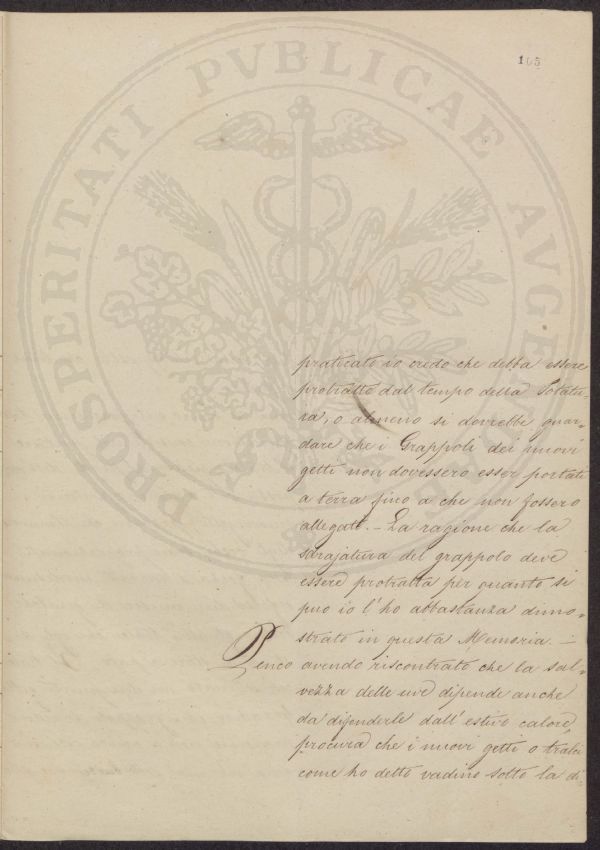 105
PROSPERITATI PVBLICAE AVGENDAE
praticato io credo che debba essere
protratto dal tempo della Potatu-
ra, o almeno si dovrebbe guar-
dare che i Grappoli dei nuovi
getti non dovessero esser portati
a terra fino a che non fossero
allegati. - La ragione che la
sdrajatura del grappolo deve
essere protratta per quanto si
può io l'ho abbastanza dimo-
strato in questa Memoria. -
Penco avendo riscontrato che la sal-
vezza delle uve dipende anche
da difenderle dall'estivo calore
procura che i nuovi getti o tralci
come ho detto vadino sotto la di-